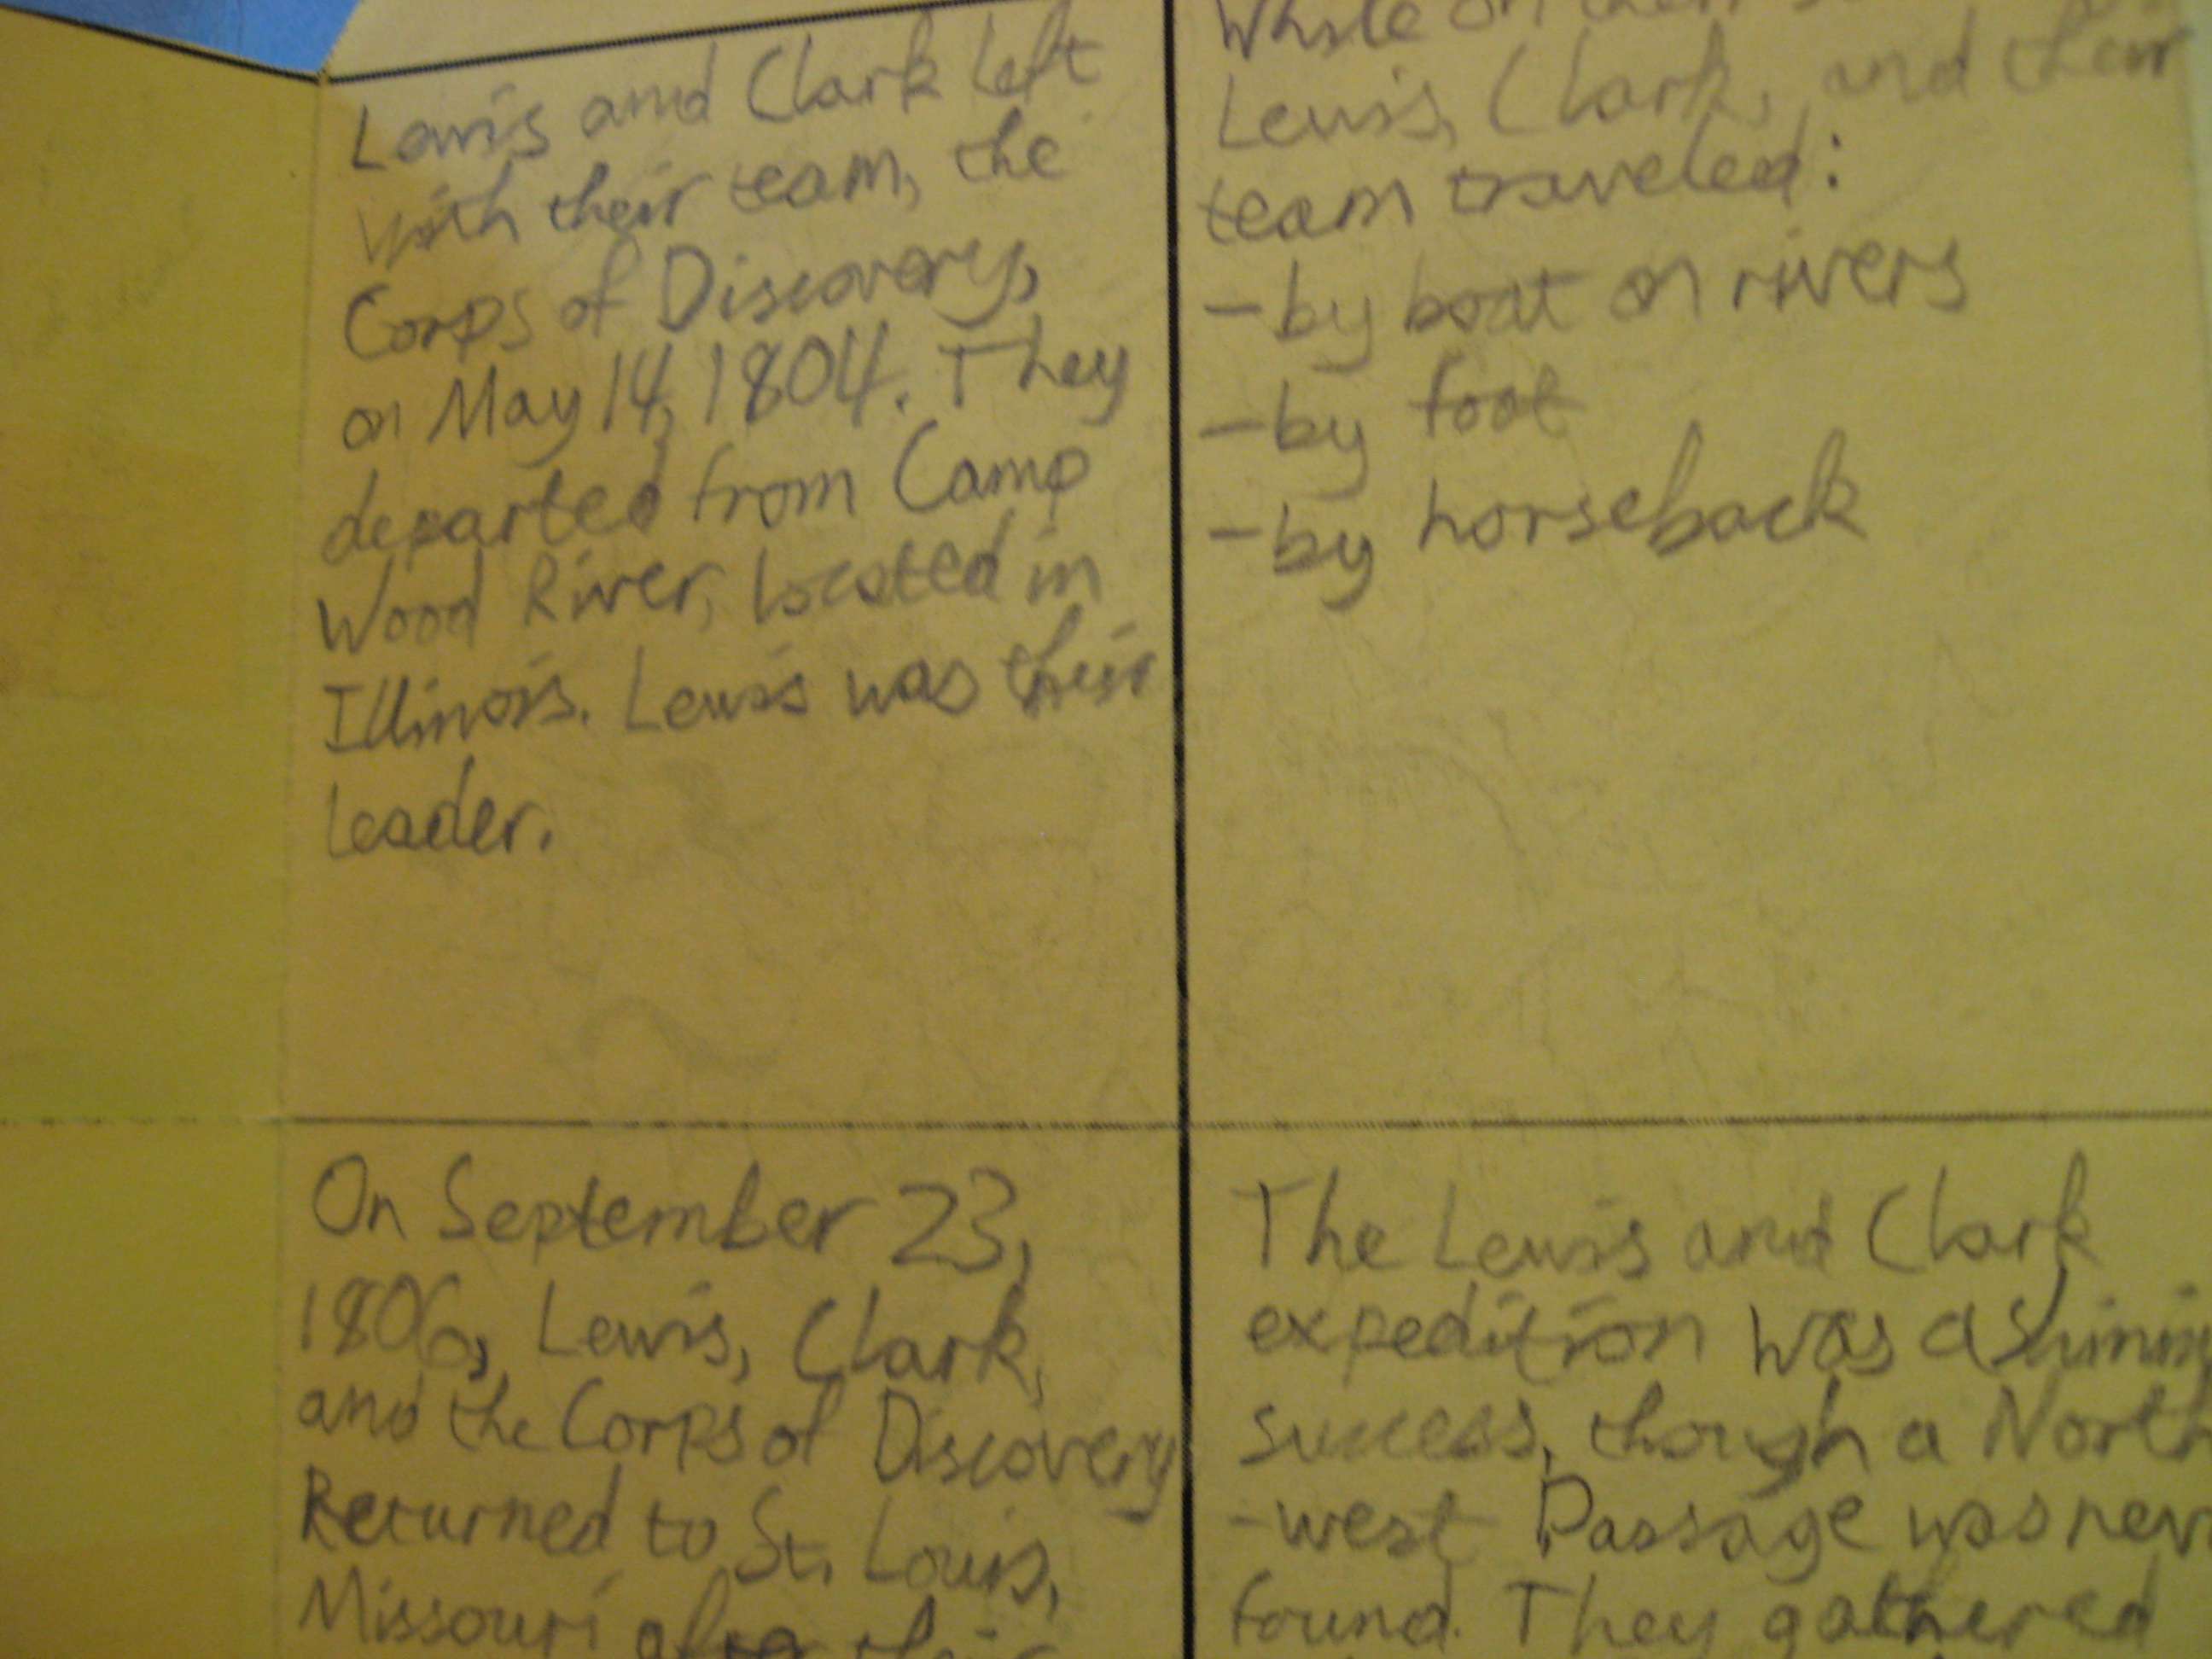 Lewis and Clark left
with their team, the
Corps of Discovery,
on May 14, 1804. They
departed from Camp
Wood River, located in
Illinois. Lewis was their
leader.
While on their
Lewis, Clark, and their
team traveled:
-by boat on rivers
-by foot
-by horseback
On September 23,
1806, Lewis, Clark,
and the Corps of Discovery
Returned to St. Louis,
Missouri after their
The Lewis and Clark
expedition was a shining
success, though a North
-west Passage was
found. They gathered